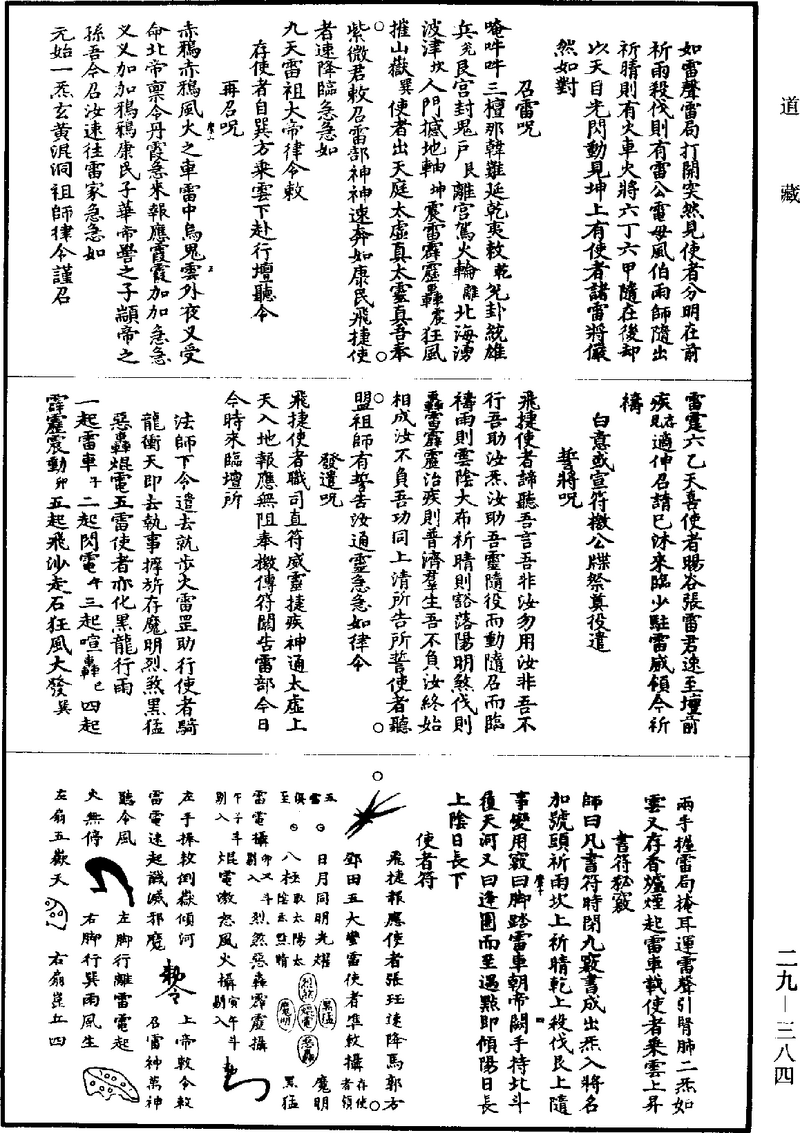 道藏
如雷聲雷局打開突然見使者分明在前
祈雨殺伐則有雷公電母風伯雨師隨出
祈晴則有火車火將六丁六甲隨在後却
以天目光閃動見坤上有使者諸雷將儼
然如對
召雷呪
唵吽吽三檀那韓難延乾夷敕乾兊卦統雄
兵兊艮宮封鬼戸艮離宮駕火輪離北海湧
波津坎人門撼地軸坤震雷霹靂轟震狂風
摧山嶽巽使者出天庭太虛真太靈真吾奉
紫微君敕召雷部神神速奔如康民飛捷使
者速降臨急急如
九天雷祖大帝律令敕
存使者自巽方乘雲下赴行壇聽令
再召呪
赤鴉赤鴉風火之車雷中烏鬼雲外夜叉受
命北帝禀令丹霞急來報應霞霞加加急急
义义加加鴉鴉康民子華帝嚳之子顓帝之
孫吾今召汝速往雷家急急如
元始一炁玄黄混洞祖師律令謹召
雷霆六乙天喜使者賜谷張雷君速至壇前
疾見存適伸召請已沐來臨少駐雷威領今祈
禱
白意或宣符檄公牒祭奠役遣
誓將呪
飛捷使者諦聽吾言吾非汝勿用汝非吾不
行吾助汝炁汝助吾靈隨役而動隨召而臨
禱雨則雲陰大布祈晴則豁落陽明煞伐則
轟雷霹靂治疾則普濟羣生吾不負汝終始
相成汝不負吾功同上清所告所誓使者聽
盟祖師有誓告汝通靈急急如律令
發遣呪
飛捷使者職司直符威靈捷疾神通太虛上
天入地報應無阻奉檄傳符關告雷部今日
今時來臨壇所
法師下令遣去就步火雷罡助行使者騎
龍衝天即去執事擇所存魔明烈煞黑猛
惡轟焜電五雷使者亦化黑龍行雨
一起雷車子二起閃電午三起喧轟巳四起
霹靂震動卯五起飛沙走石狂風大發巽
兩手握雷局掩耳運雷聲引腎肺二炁如
雲又存香爐煙起雷車載使者乘雲上昇
書符秘竅
師曰凡書符時閉九竅書成出炁入將名
加號頭祈雨坎上祈晴乾上殺伐艮上隨
事變用竅曰脚踏雷車朝帝闕手持北斗
覆天河又曰逢圈而至遇點即傾陽日長
上陰日長下
使者符
飛捷報應使者張珏速降馬郭方
鄧田五大蠻雷使者準敕攝存使者領
五雷俱至
日月同明光耀
八極
取太陽太陰炁點睛
烈煞
焜電
惡轟
黑猛
魔明
魔明
黑猛
雷電攝
斗烈煞張轟霹靂攝
午子斗剔入
焜電激怒風火攝
寅午斗剔入
左手捧敕倒嶽傾河
上帝敕令敕
雷電速起馘滅邪魔
敕令
召雷神萬神
聽令風
左脚行離雷電起
火無停
右脚行巽雨風生
左扇五嶽天
右扇崑丘四
二九—三八四